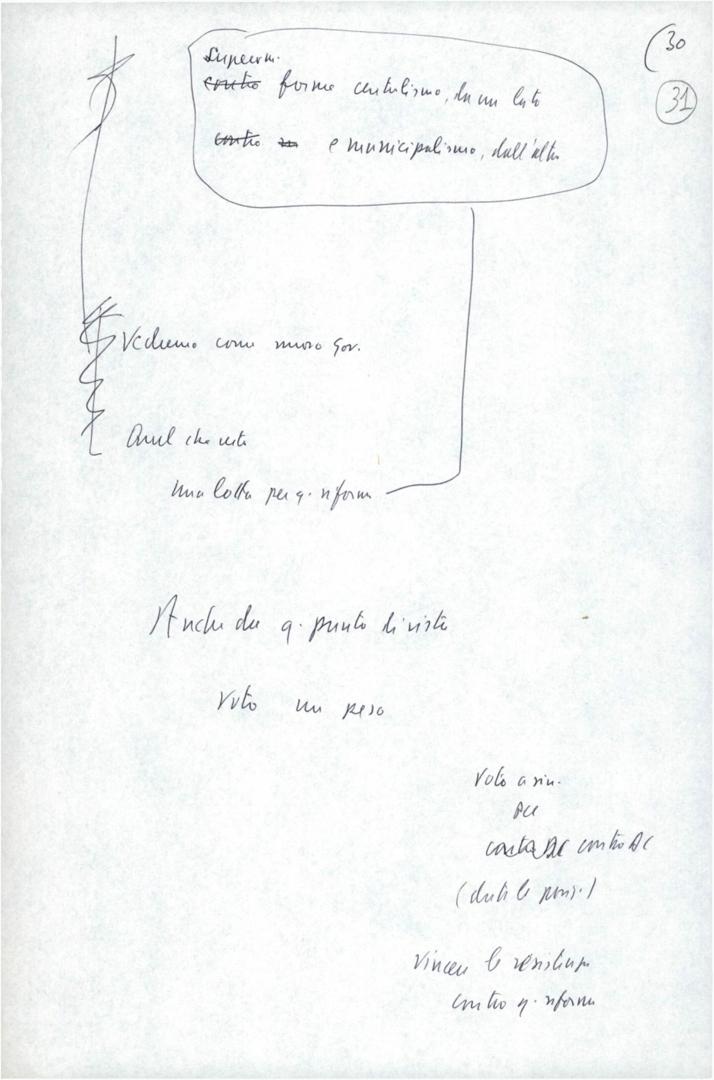 (30
31
Superam.
contro forme centralismo, da un lato
contro e municipalismo, dall'altro
Vedremo come nuovo gov.
Quel che resta
una lotta per q. riforma
Anche da q. punto di vista
Voto un peso
Voto a sin.
PCI
contro DC
(date le posiz.)
Vincere le resistenze
contro q. riforma